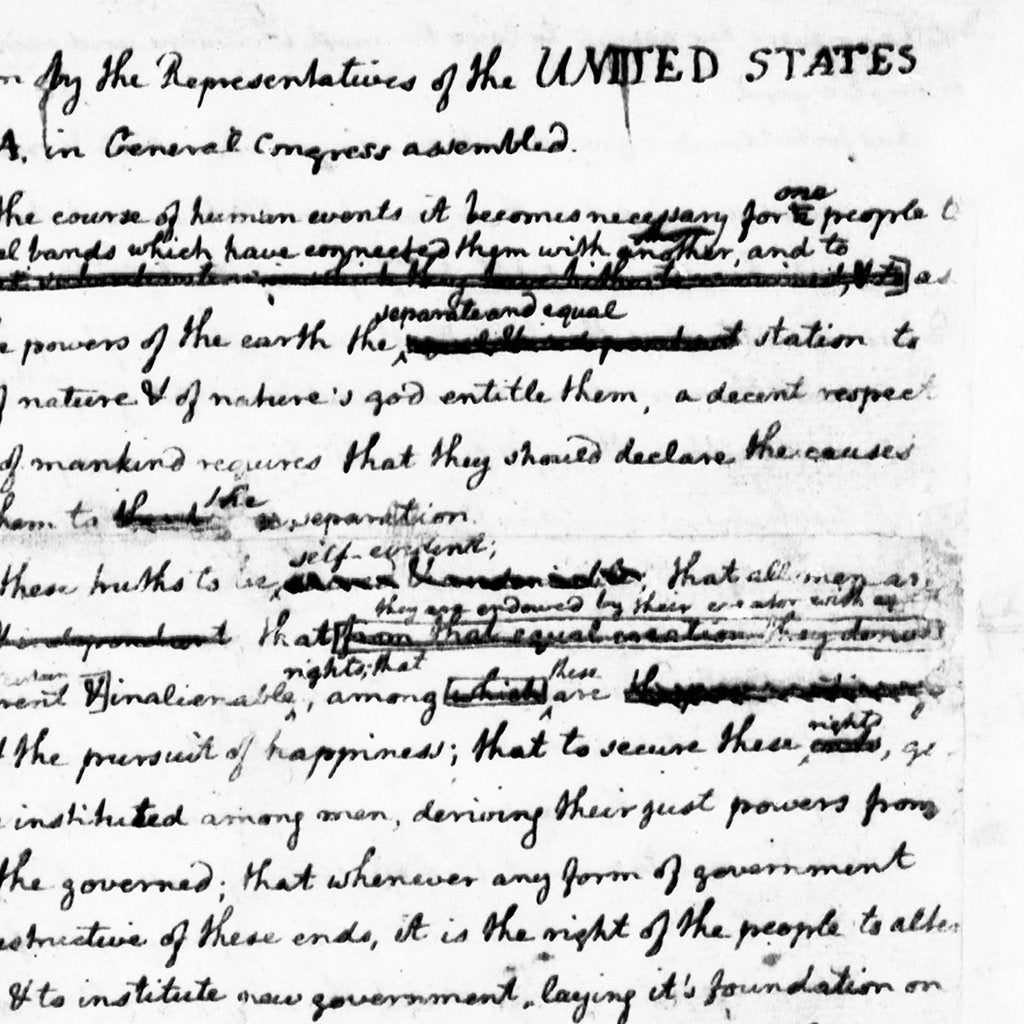 by the Representatives of the UNITED STATES
A. in General Congress assembled.
one
the course of human events it becomes necessary for people
bands which have connected them with another, and to
as
separate and equal
powers of the earth the station to
nature & of nature's god entitle them, a decent respect
of mankind requires that they should declare the causes
the
them to separation.
self-evident;
these truths to be, that all men ar
they are endowed by their creator with
that [from that equal creation they
rights; that
certain these
&] inalienable, among [which] are
rights
the pursuit of happiness; that to secure these ends, go
instituted among men, deriving their just powers from
the governed; that whenever any form of government
of these ends, it is the right of the people to alter
& to institute new government, laying it's foundation on